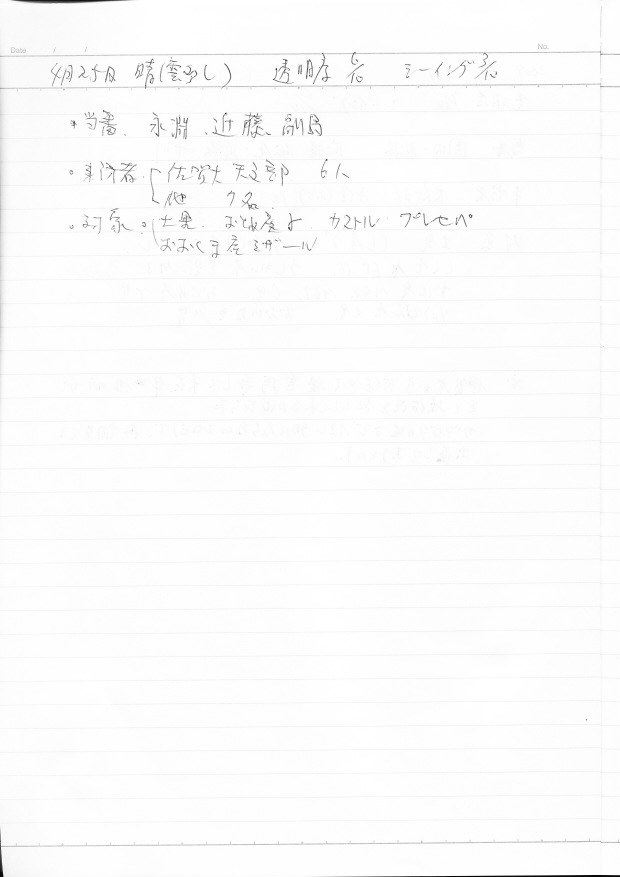 Date / /
No.
4月25日 晴(雲少し) 透明度 6/10 シーイング 3/10
・当番. 永淵. 近藤. 副島
・来訪者. 佐賀大天文部 6人
他 7名.
・対象: 土星. おとめ座γ. カストル プレセペ
おおくま座ミザール